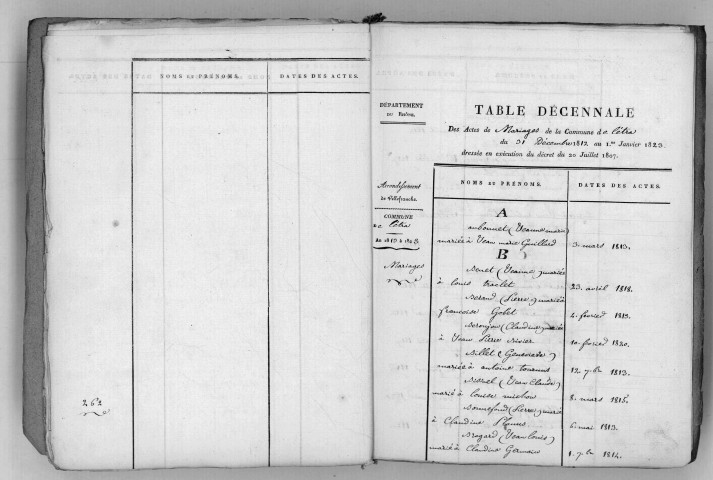 NOMS ET PRÉNOMS.
DATES DES ACTES.
262
DÉPARTEMENT
DU RHÔNE.
Arrondissement
de Villefranche.
COMMUNE
de Létra
An 1813 à 1823
Mariages
TABLE DÉCENNALE
Des Actes de Mariages de la Commune de Létra
du 31 Décembre 1812 au 1.er Janvier 1823.
dressée en exécution du décret du 20 Juillet 1807.
NOMS ET PRÉNOMS.
DATES DES ACTES.
A
aubonnet (Jeanne marie)
mariée à Jean marie Guillard 3. mars 1813.
B
Benet (Jeanne) mariée
à louis traclet 23. avril 1818.
Berand (Pierre) marié à
françoise Golet 2. février 1813.
(Claudine) mariée
à Jean Pierre 10. février 1820.
Billet (Genevieve)
mariée à antoine tournus 12 7.bre 1813.
(Jean Claude)
marié à louise michon 8. mars 1815.
Bonnefond (Pierre) marié
à Claudine 6. mai 1813.
Brogard (Jean louis)
marié à Claudine Germain 1. 7.bre 1814.